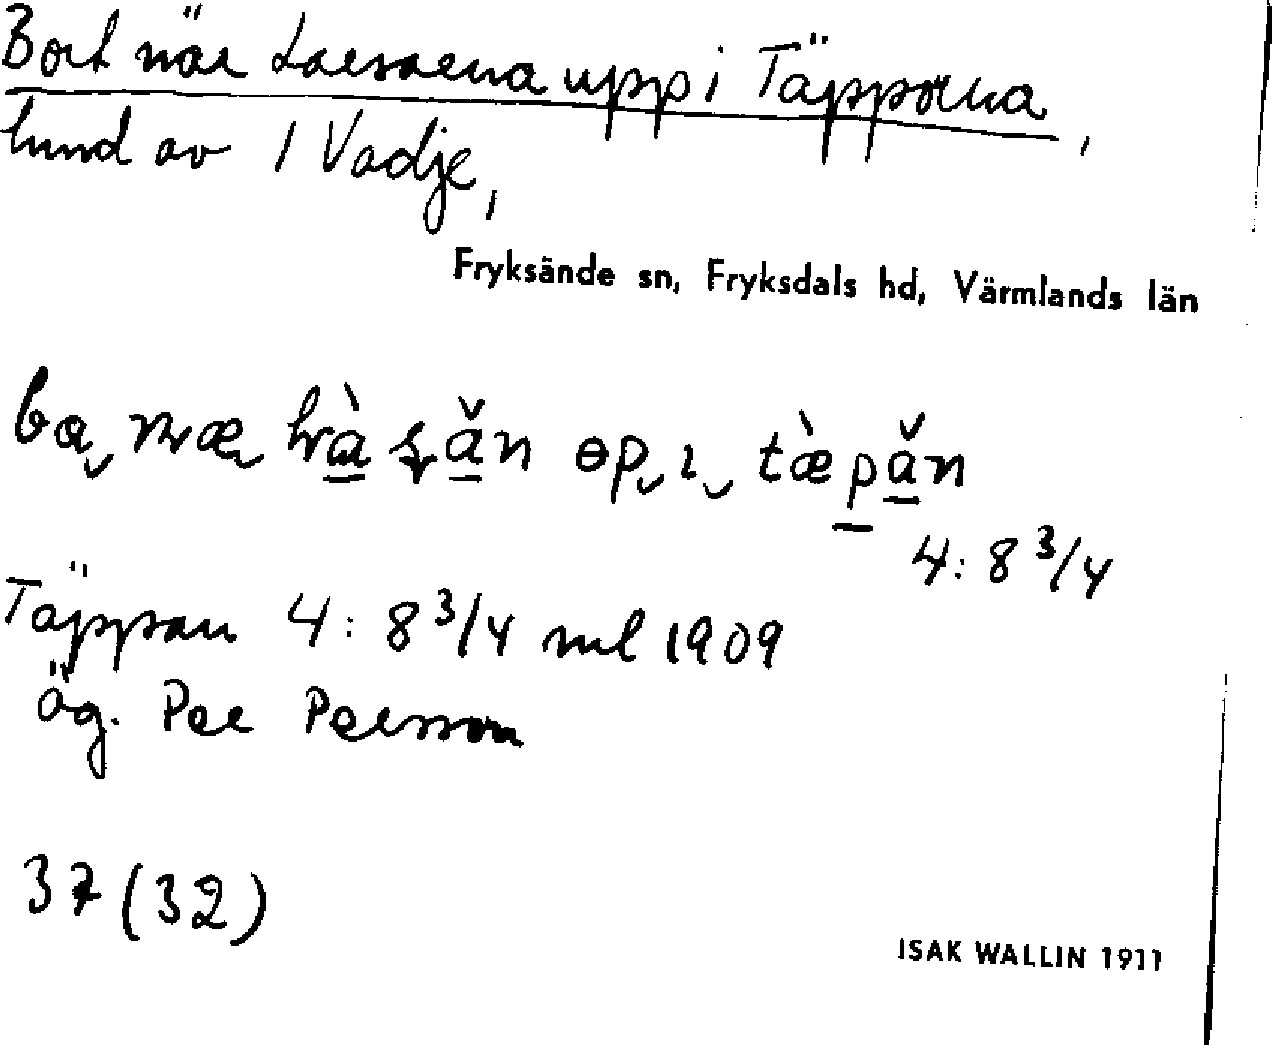 Bort när Larsarna upp i Täpporna,
lund av 1 Vadje,
Fryksände sn, Fryksdals hd, Värmlands län
4: 8 3/4
Täppan 4: 8 3/4 ml 1909
äg. Per Persson
37 (32)
ISAK WALLIN 1911